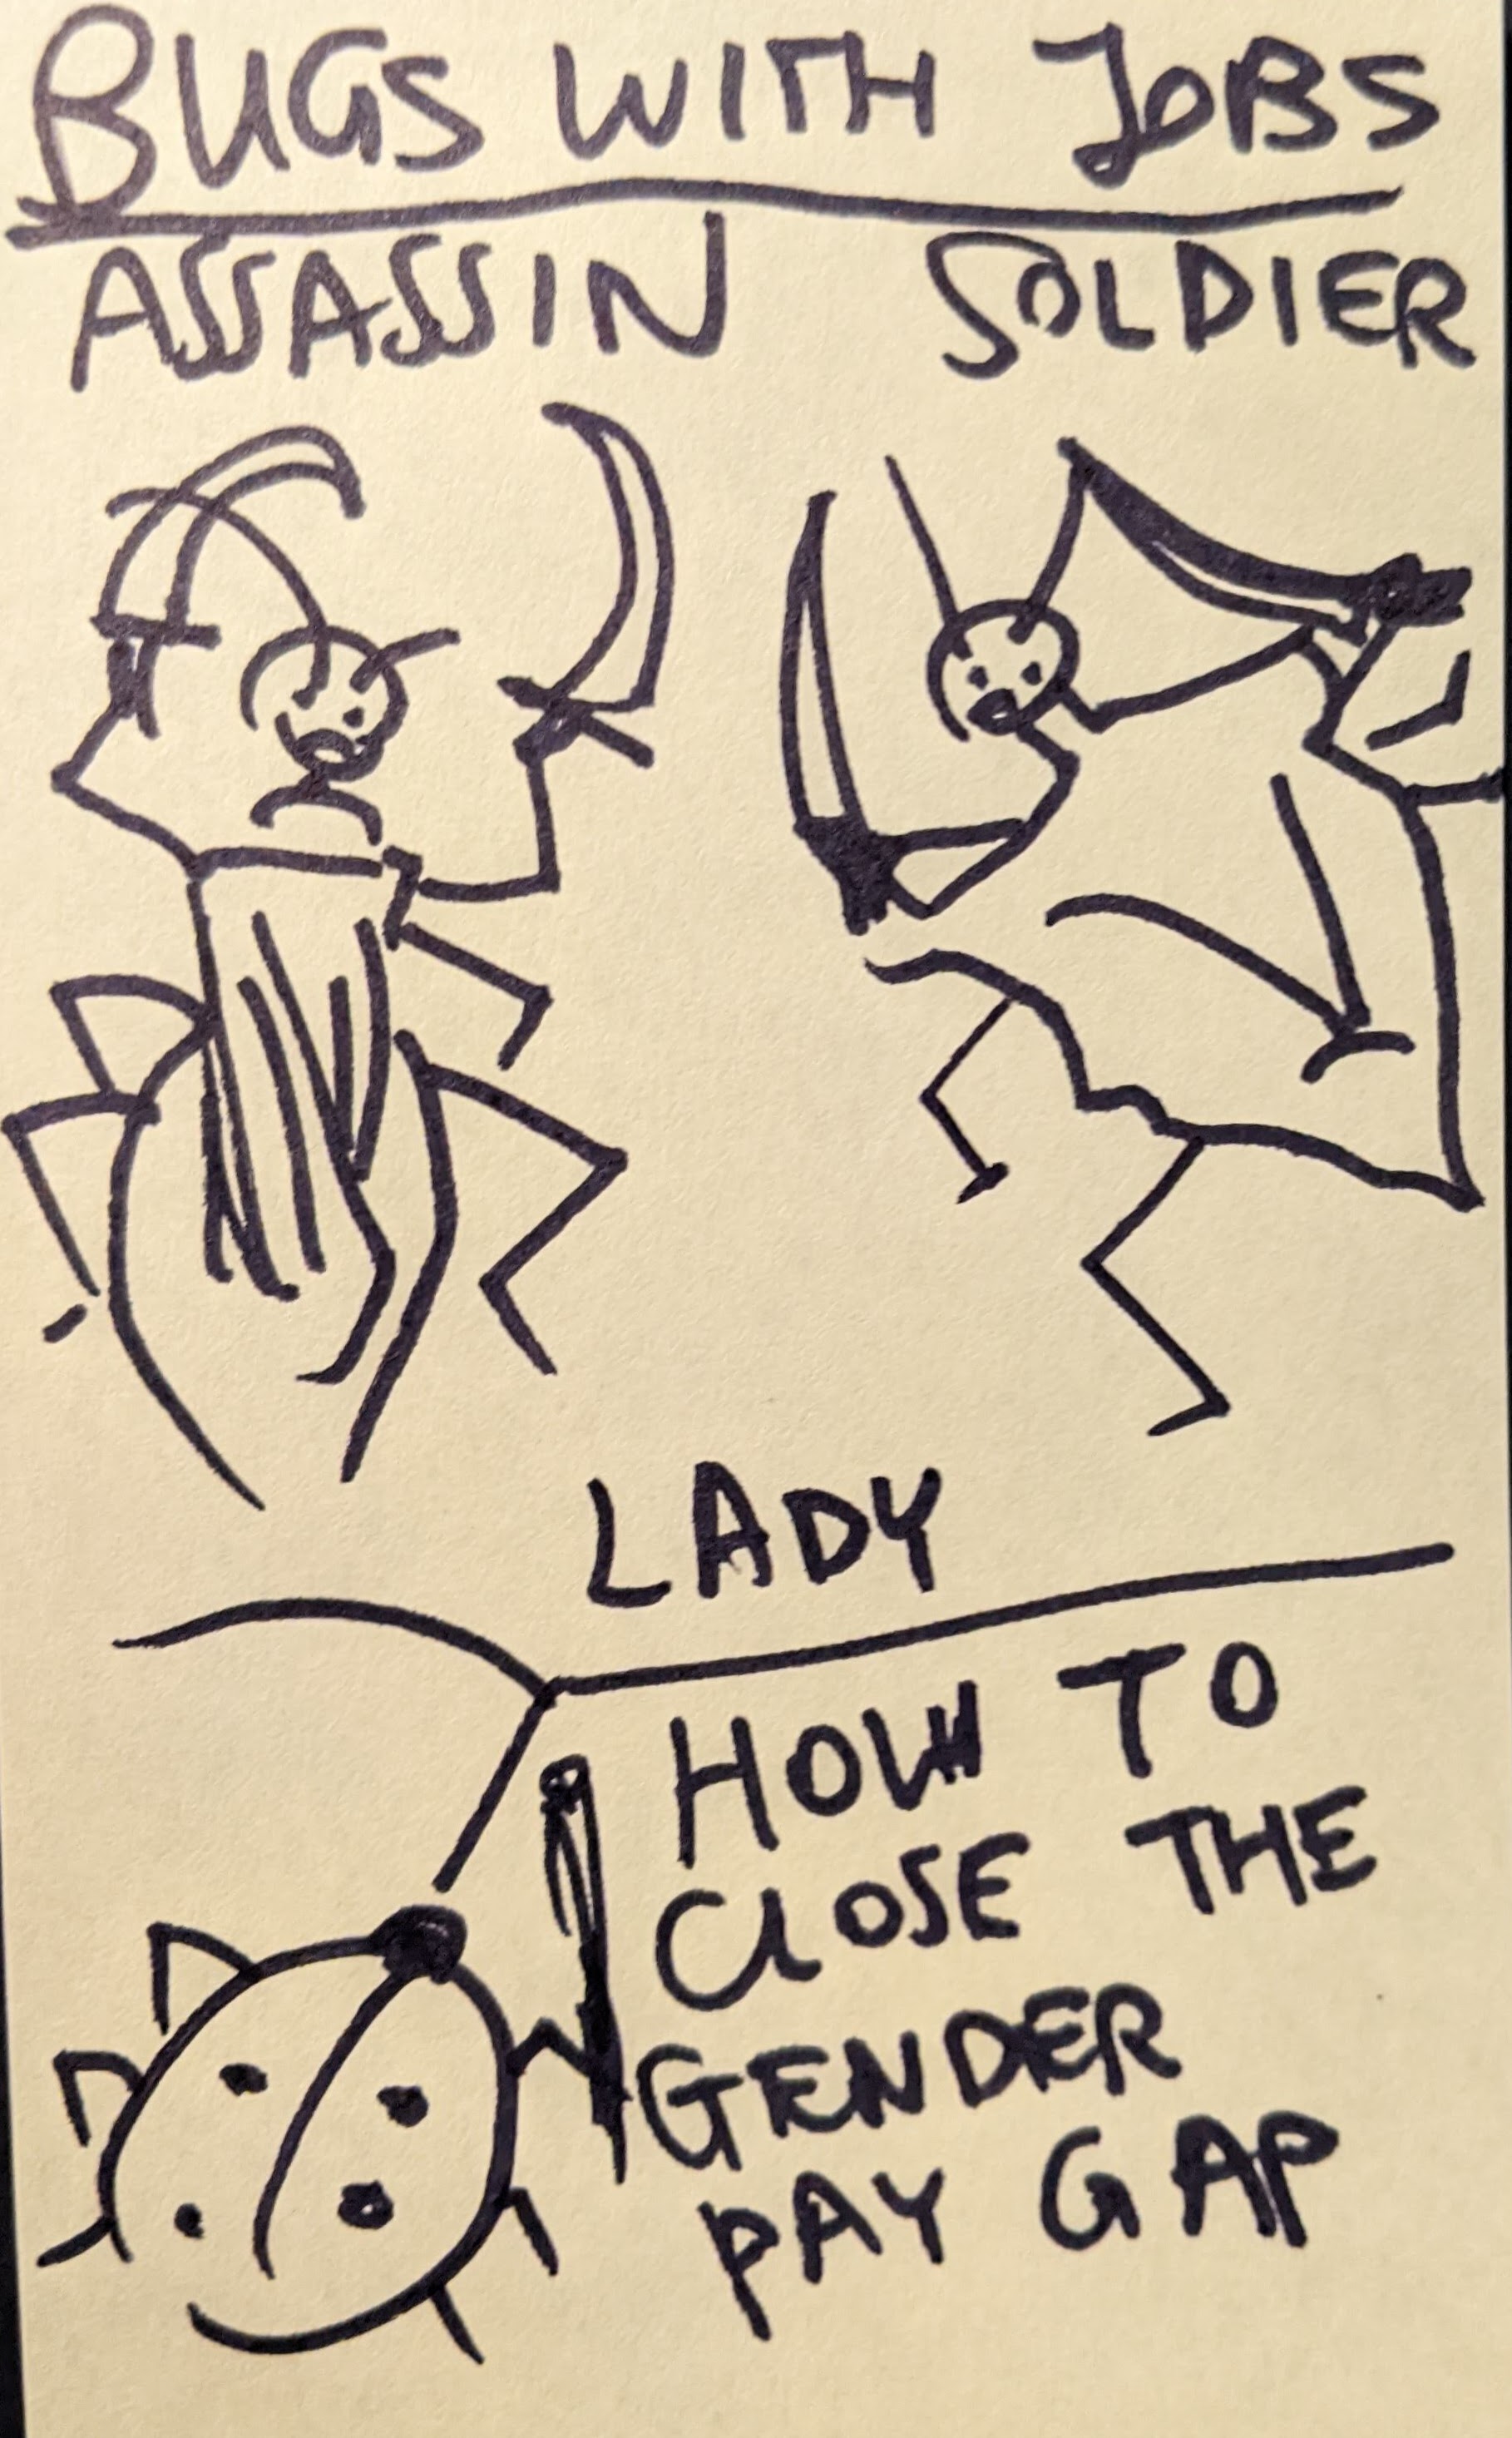 BUGS WITH JOBS
ASSASSIN
SOLDIER
LADY
HOW TO
CLOSE THE
GENDER
PAY GAP